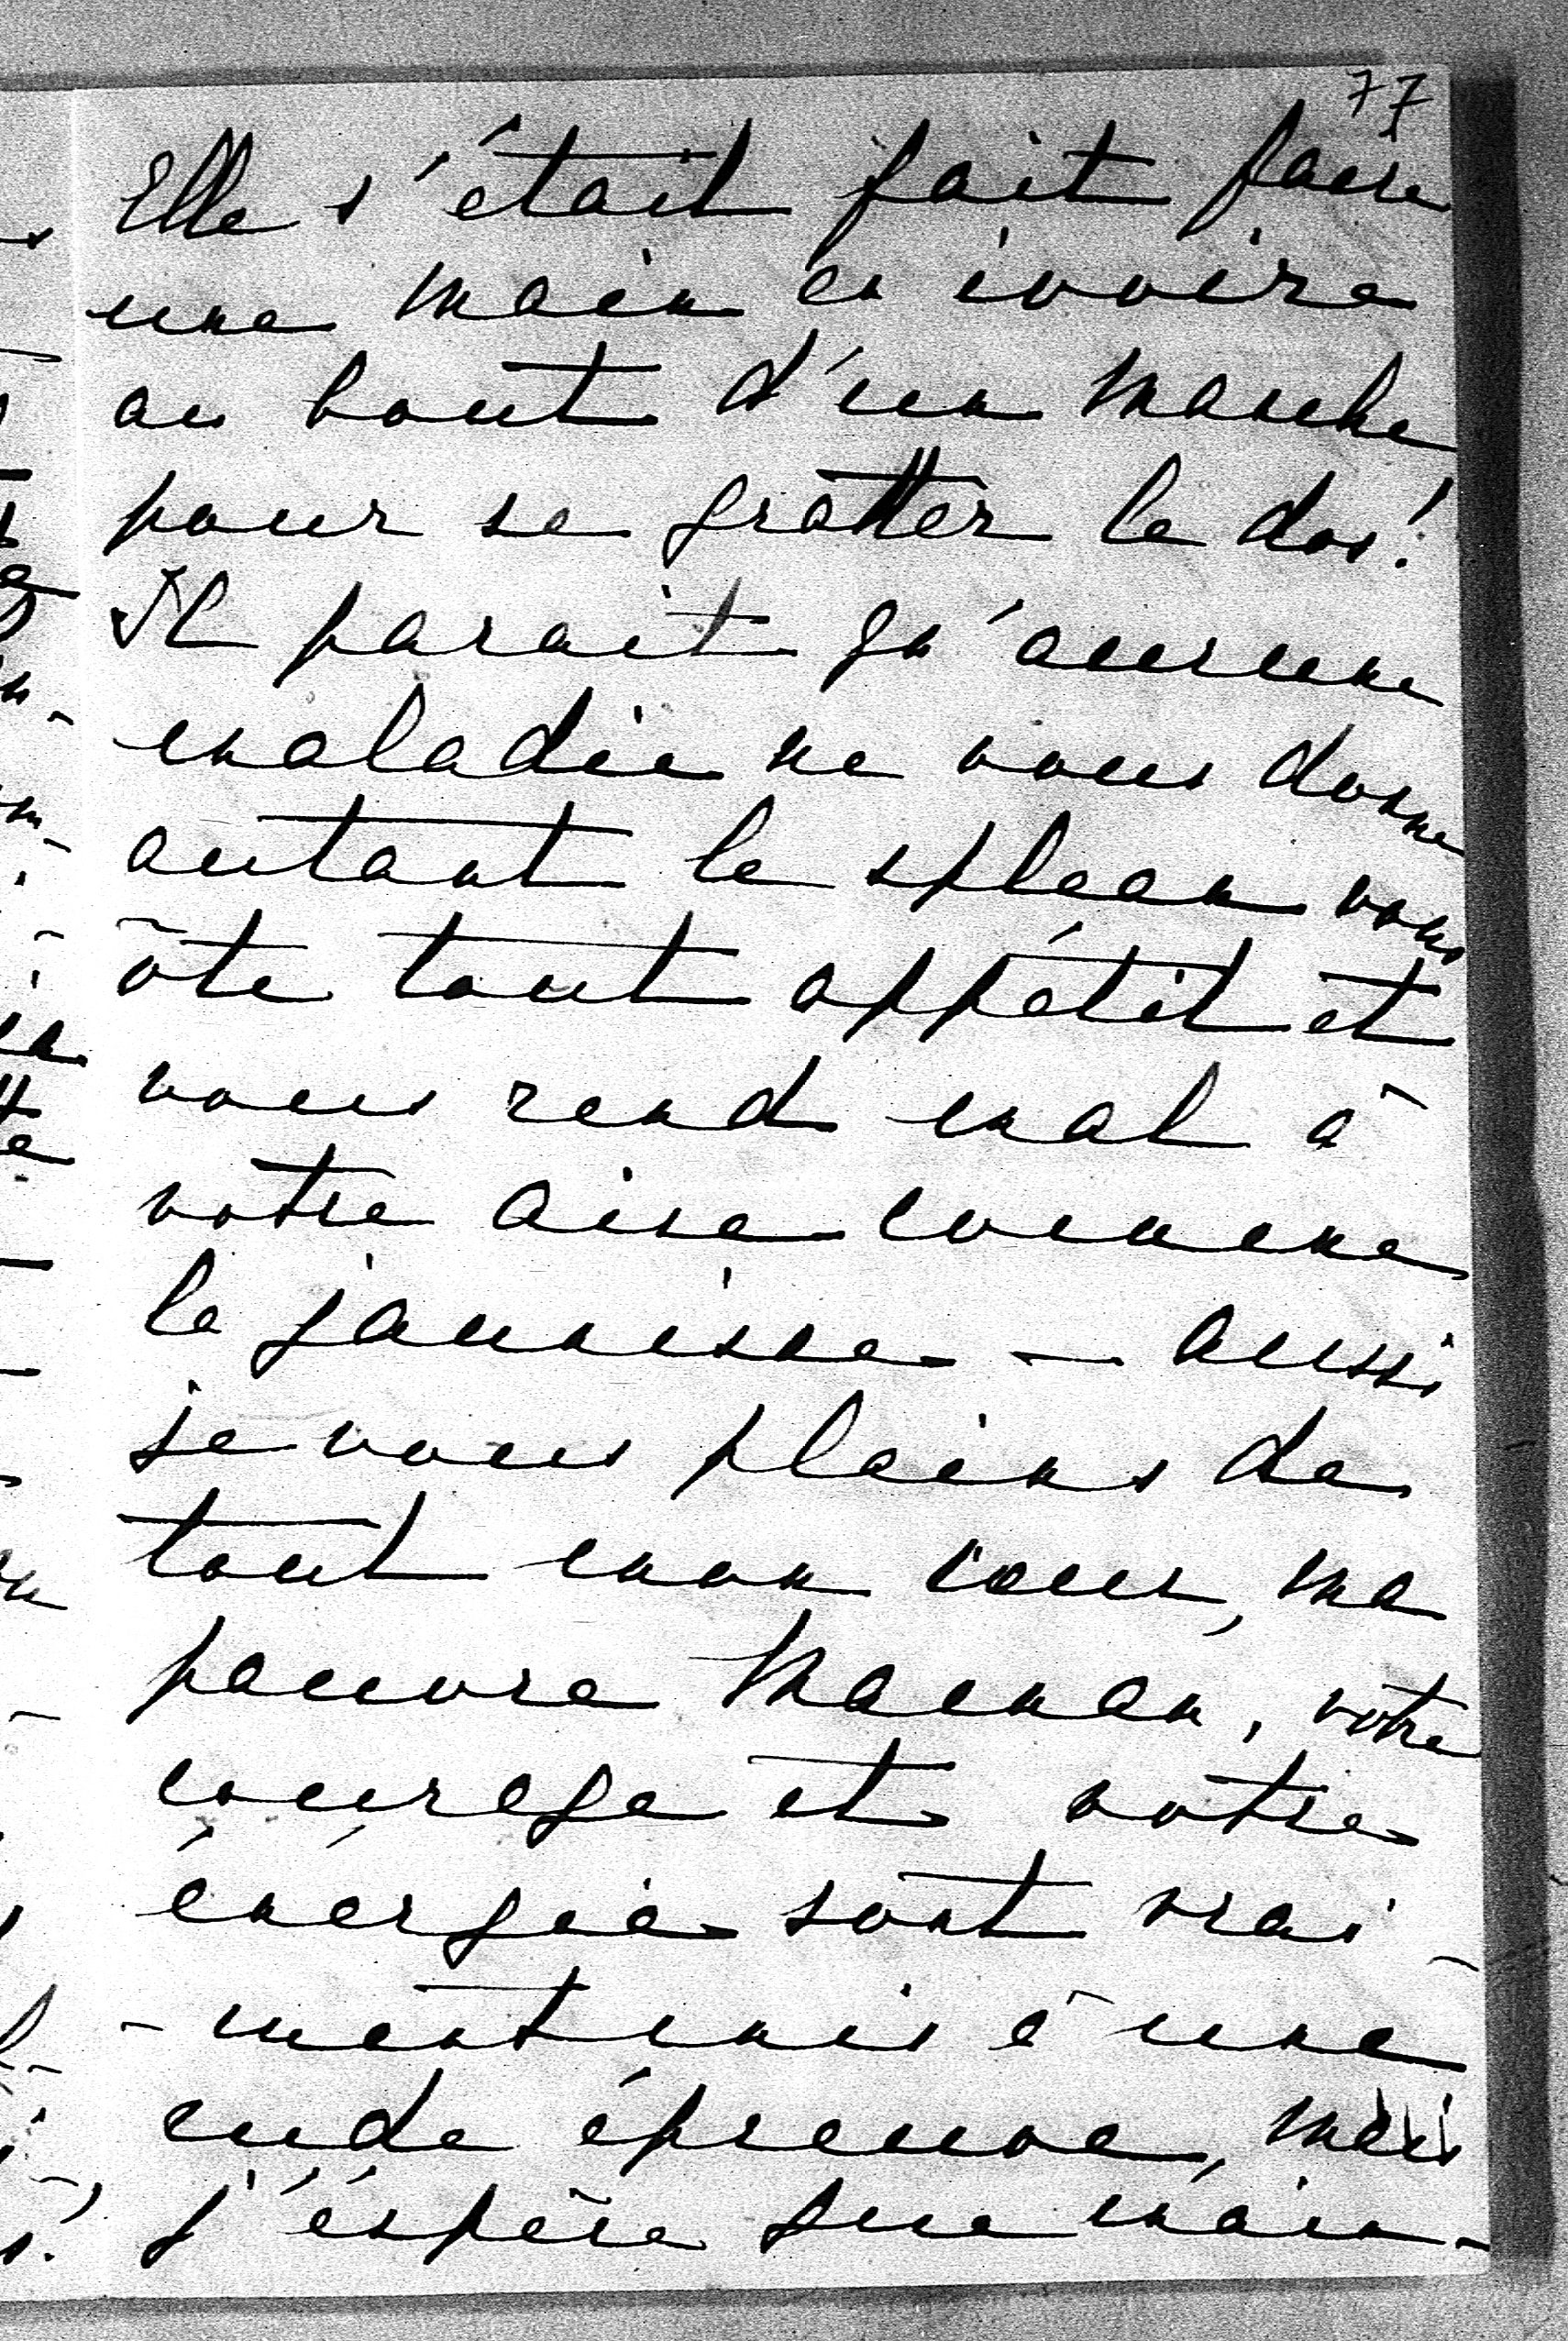 77
Elle s'était fait faire
une main en ivoire
au bout d'un manche
pour se gratter le dos!
Il parait qu'aucune
maladie ne vous donne
autant le spleen vous
ôte tout appétit et
vous rend mal à
votre aise comme
la jaunisse — aussi
je vous plains de
tout mon cœur, ma
pauvre Maman, votre
courage et votre
énergie sont vrai-
-ment mis à une
rude épreuve, mais
j'éspère que main-